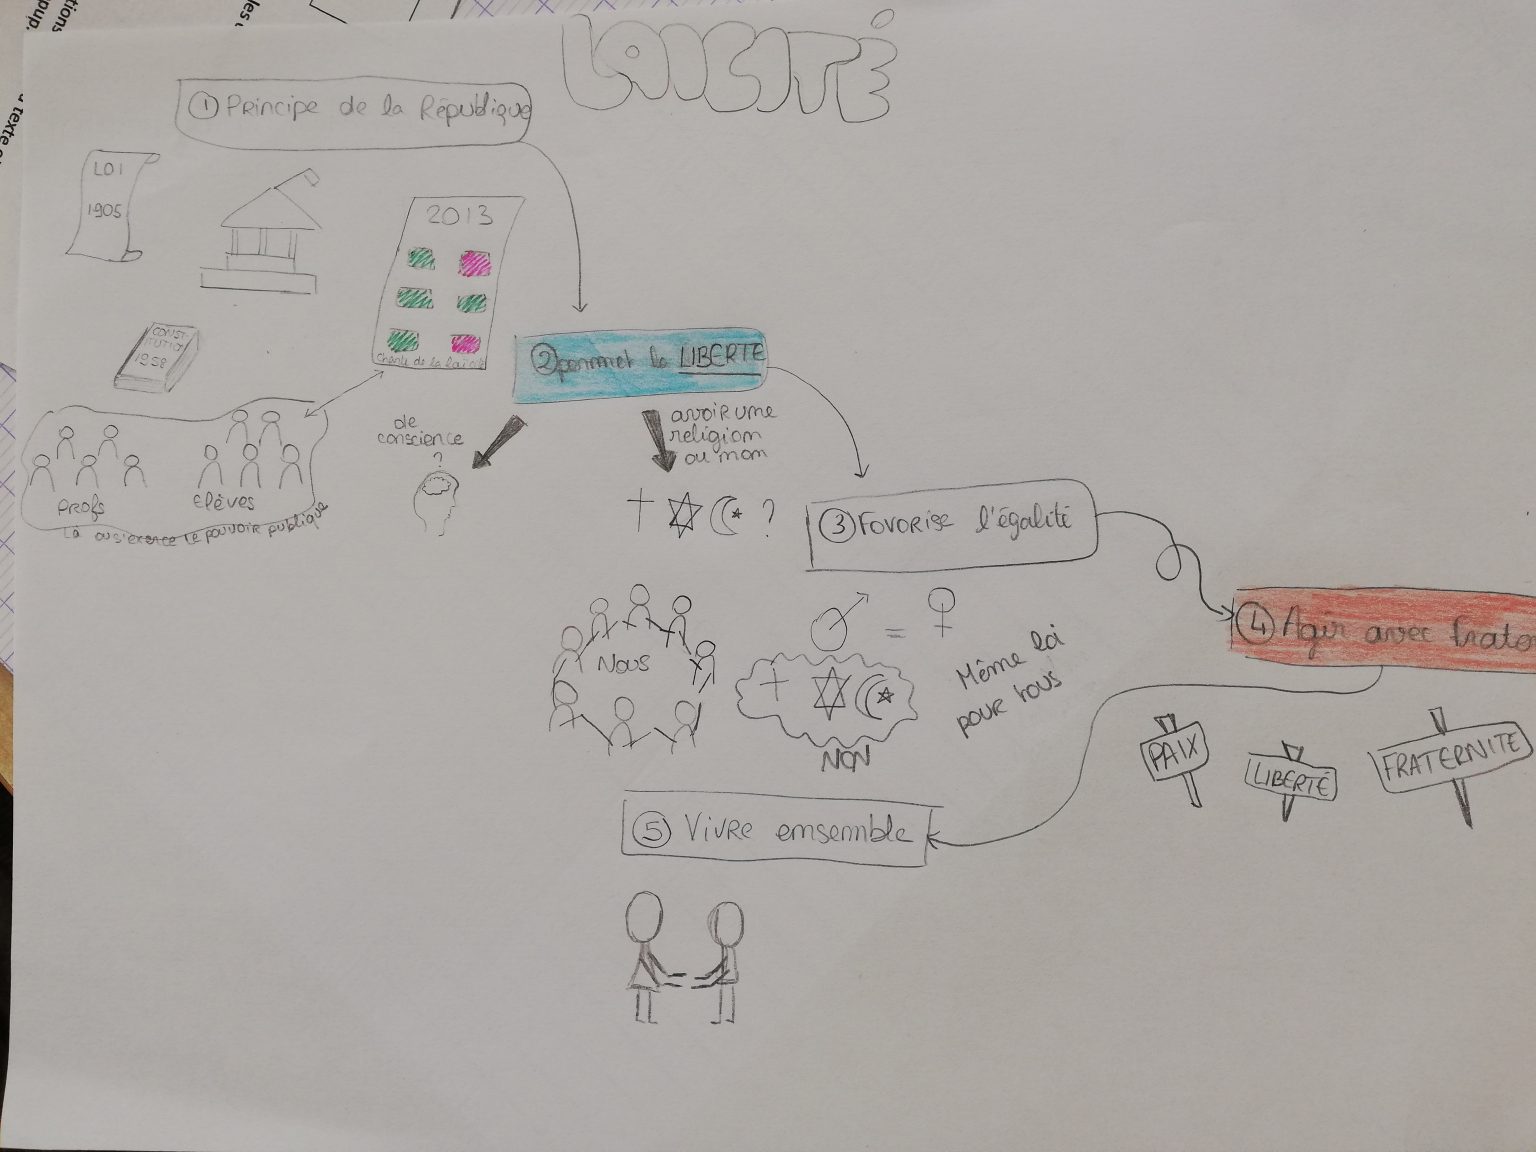 LAICITÉ
① Principe de la République
LOI
1905
2013
Charte de la laïcité
CONST-
ITUTION
1958
Profs
élèves
Là où s'exerce le pouvoir publique
② permet la LIBERTE
de
conscience
?
avoir une
religion
ou non
?
③ Favorise l'égalité
Nous
=
Même loi
pour tous
NON
④ Agir avec frater
PAIX
LIBERTÉ
FRATERNITE
⑤ Vivre ensemble
les
texte